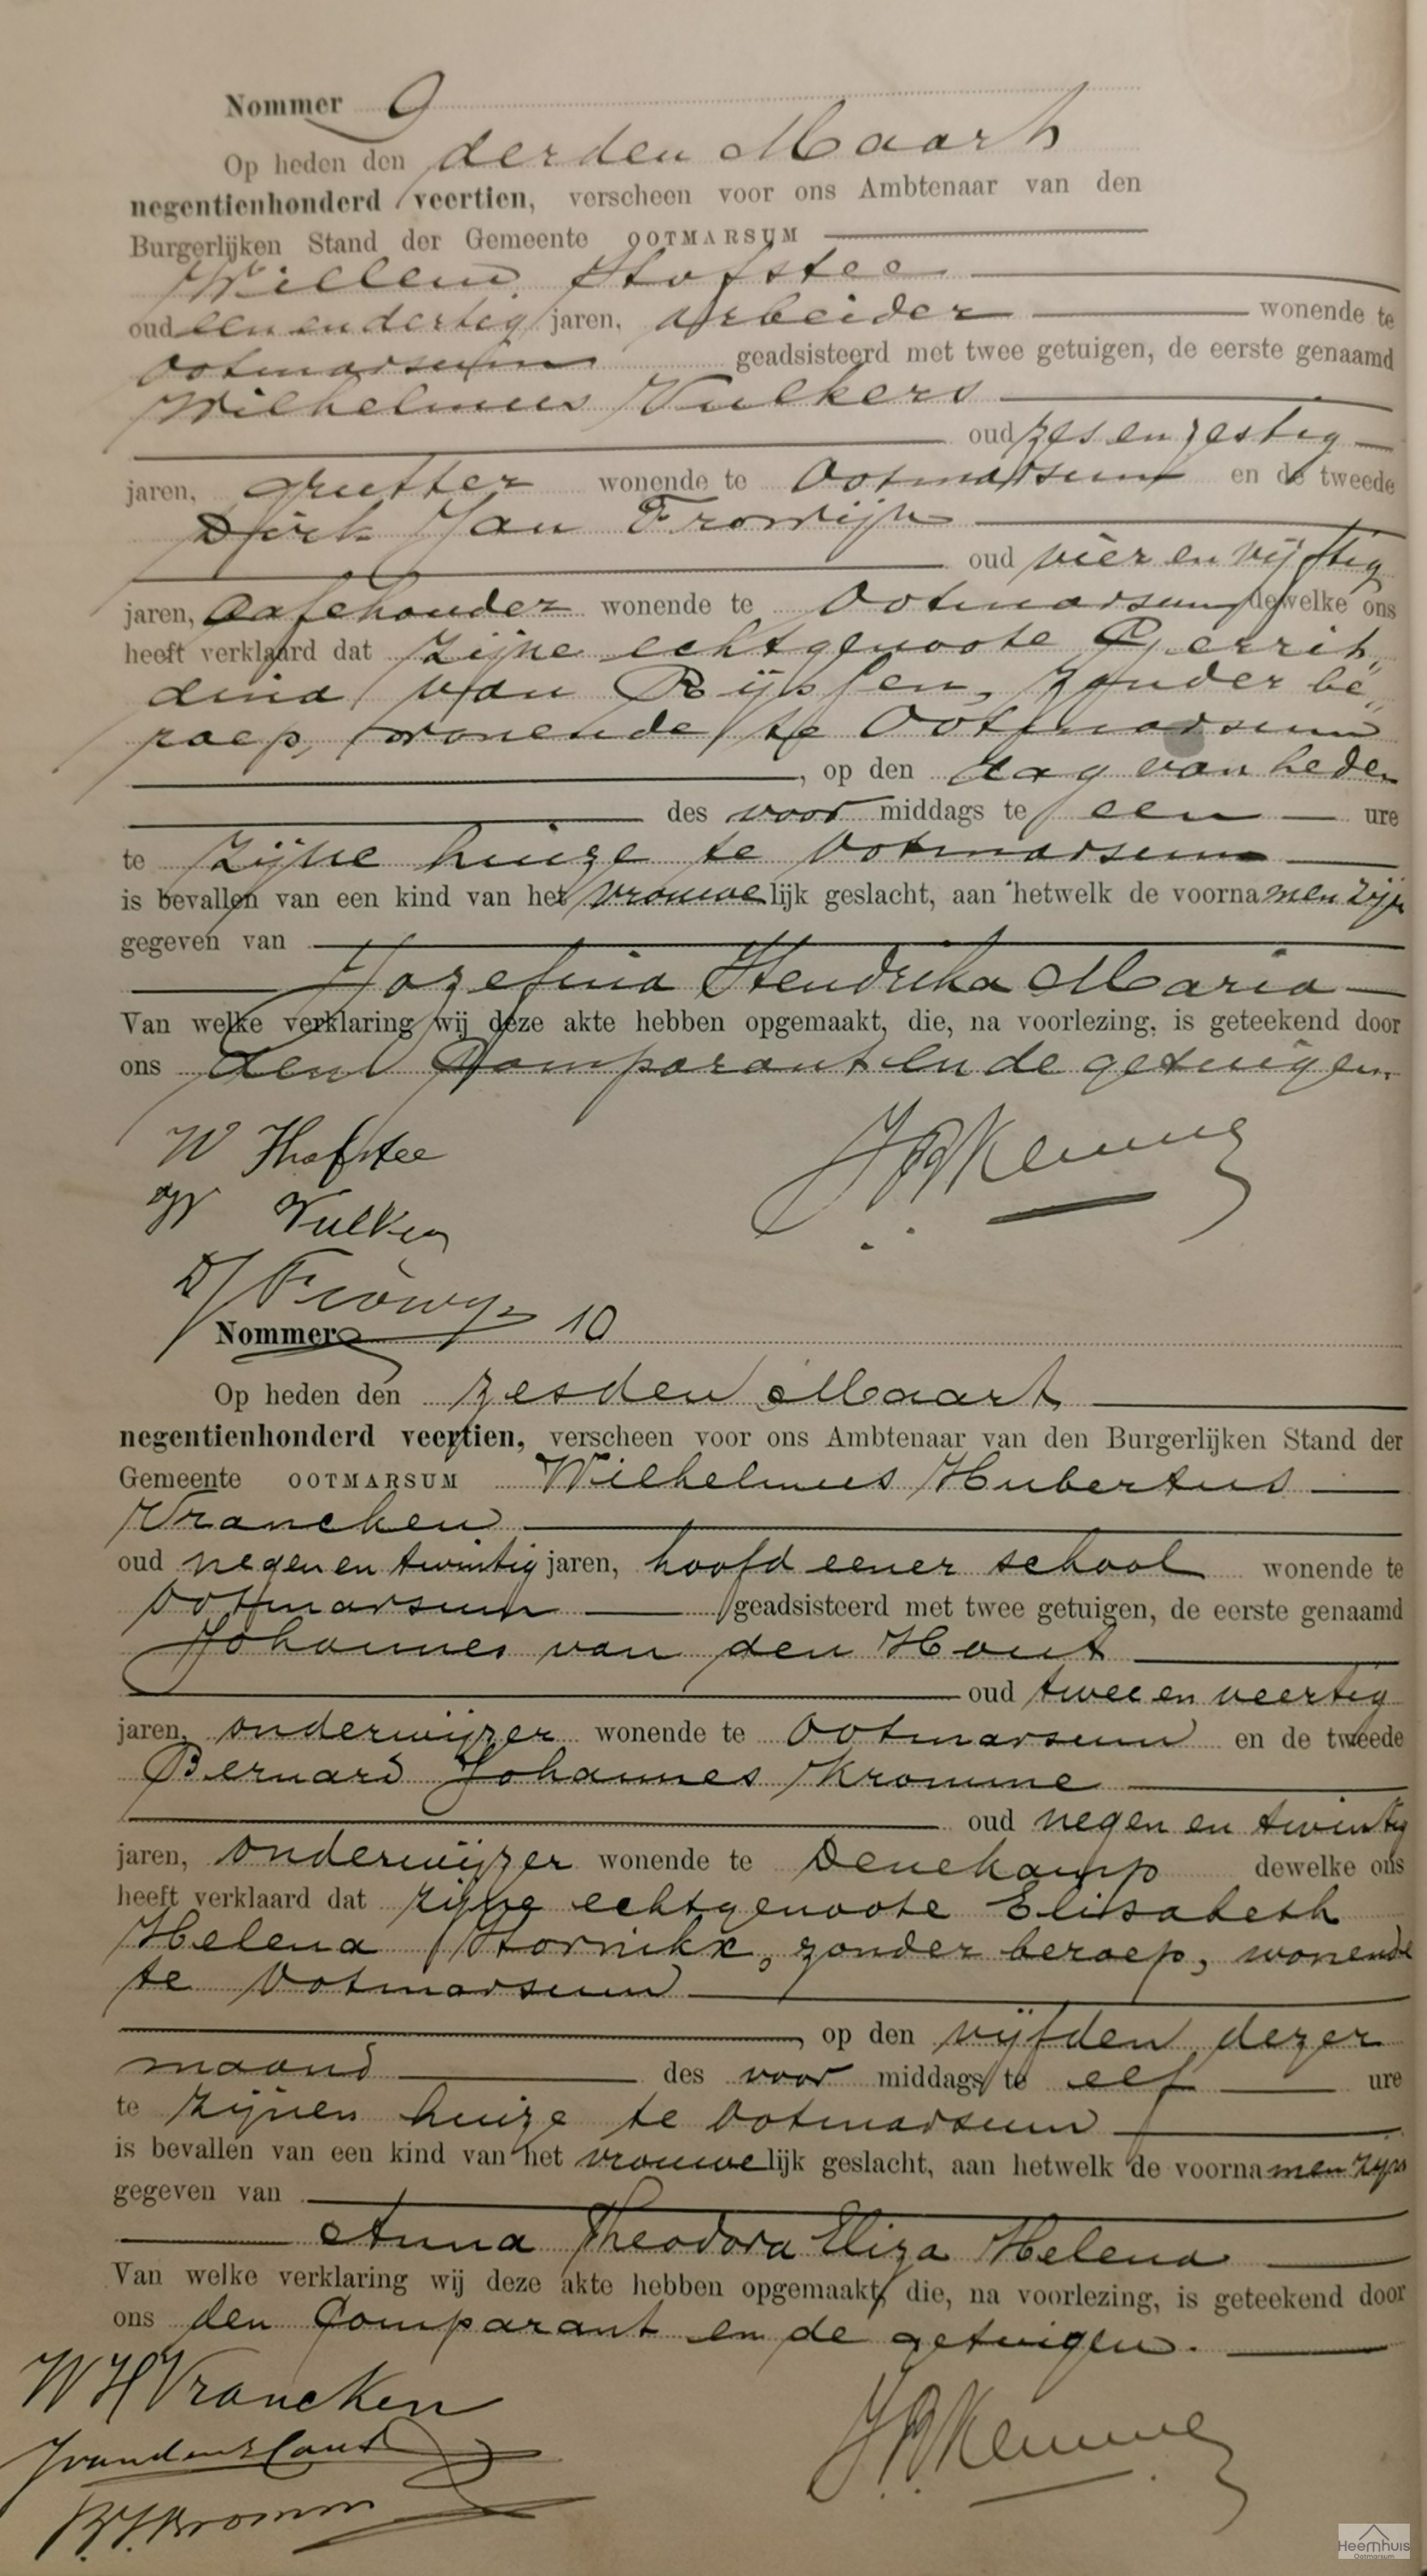 Nommer 9
Op heden den derden Maart
negentienhonderd veertien, verscheen voor ons Ambtenaar van den
Burgerlijken Stand der Gemeente OOTMARSUM
Willem Hofstee
oud een en dertig jaren, arbeider wonende te
Ootmarsum geadsisteerd met twee getuigen, de eerste genaamd
Wilhelmus Vulkers
oud zes en zestig
jaren, grutter wonende te Ootmarsum en de tweede
Dirk Jan Frowijn
oud vier en vijftig
jaren, Cafehouder wonende te Ootmarsum dewelke ons
heeft verklaard dat zijne echtgenoote Gerrit„
dina van Rijssen, zonder be„
roep, wonende te Ootmarsum
, op den dag van heden
des voor middags te een ure
te zijne huize te Ootmarsum
is bevallen van een kind van het vrouwelijk geslacht, aan hetwelk de voornamen zijn
gegeven van
Jozefina Hendrika Maria
Van welke verklaring wij deze akte hebben opgemaakt, die, na voorlezing, is geteekend door
ons den Comparant en de getuigen.
W Hofstee
W Vulkers
DJ Frowijn
Nommer 10
Op heden den zesden Maart
negentienhonderd veertien, verscheen voor ons Ambtenaar van den Burgerlijken Stand der
Gemeente OOTMARSUM Wilhelmus Hubertus
Vrancken
oud negen en twintig jaren, hoofd eener school wonende te
Ootmarsum geadsisteerd met twee getuigen, de eerste genaamd
Johannes van den Hout
oud twee en veertig
jaren, onderwijzer wonende te Ootmarsum en de tweede
Bernard Johannes Kromme
oud negen en twintig
jaren, onderwijzer wonende te Denekamp dewelke ons
heeft verklaard dat zijne echtgenoote Elisabeth
Helena Hornikx, zonder beroep, wonende
te Ootmarsum
, op den vijfden dezer
maand des voor middags te elf ure
te zijnen huize te Ootmarsum
is bevallen van een kind van het vrouwelijk geslacht, aan hetwelk de voornamen zijn
gegeven van
Anna Theodora Eliza Helena
Van welke verklaring wij deze akte hebben opgemaakt, die, na voorlezing, is geteekend door
ons den Comparant en de getuigen.
W H Vrancken
J van den Hout
B.J. Kromme
Heemhuis
Ootmarsum